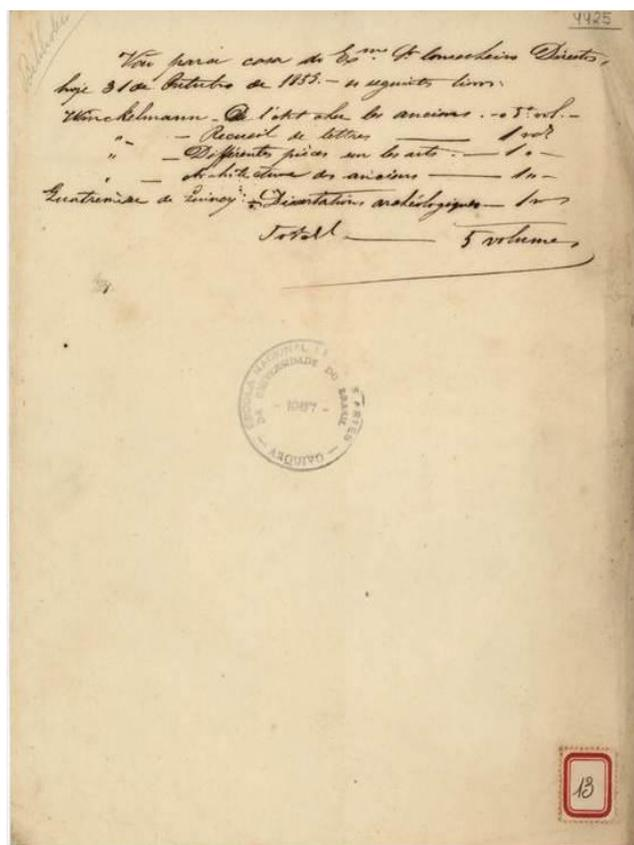 4425
Bibliotheca
Vão para casa do Ex.mo Sr. Conselheiro Director,
hoje 31 de Outubro de 1855. — os seguintes livros:
Winckelmann — De l'art chez les anciens. — 3º vol. —
" — Recueil de lettres — 1 vol
" — Différentes pièces sur les arts. — 1 " —
" — Architecture des anciens — 1 " —
Quatremère de Quincy: — Dissertations archéologiques — 1 "
Total — 5 volumes
ESCOLA NACIONAL DE BELAS ARTES
DA UNIVERSIDADE DO BRASIL
ARQUIVO
13